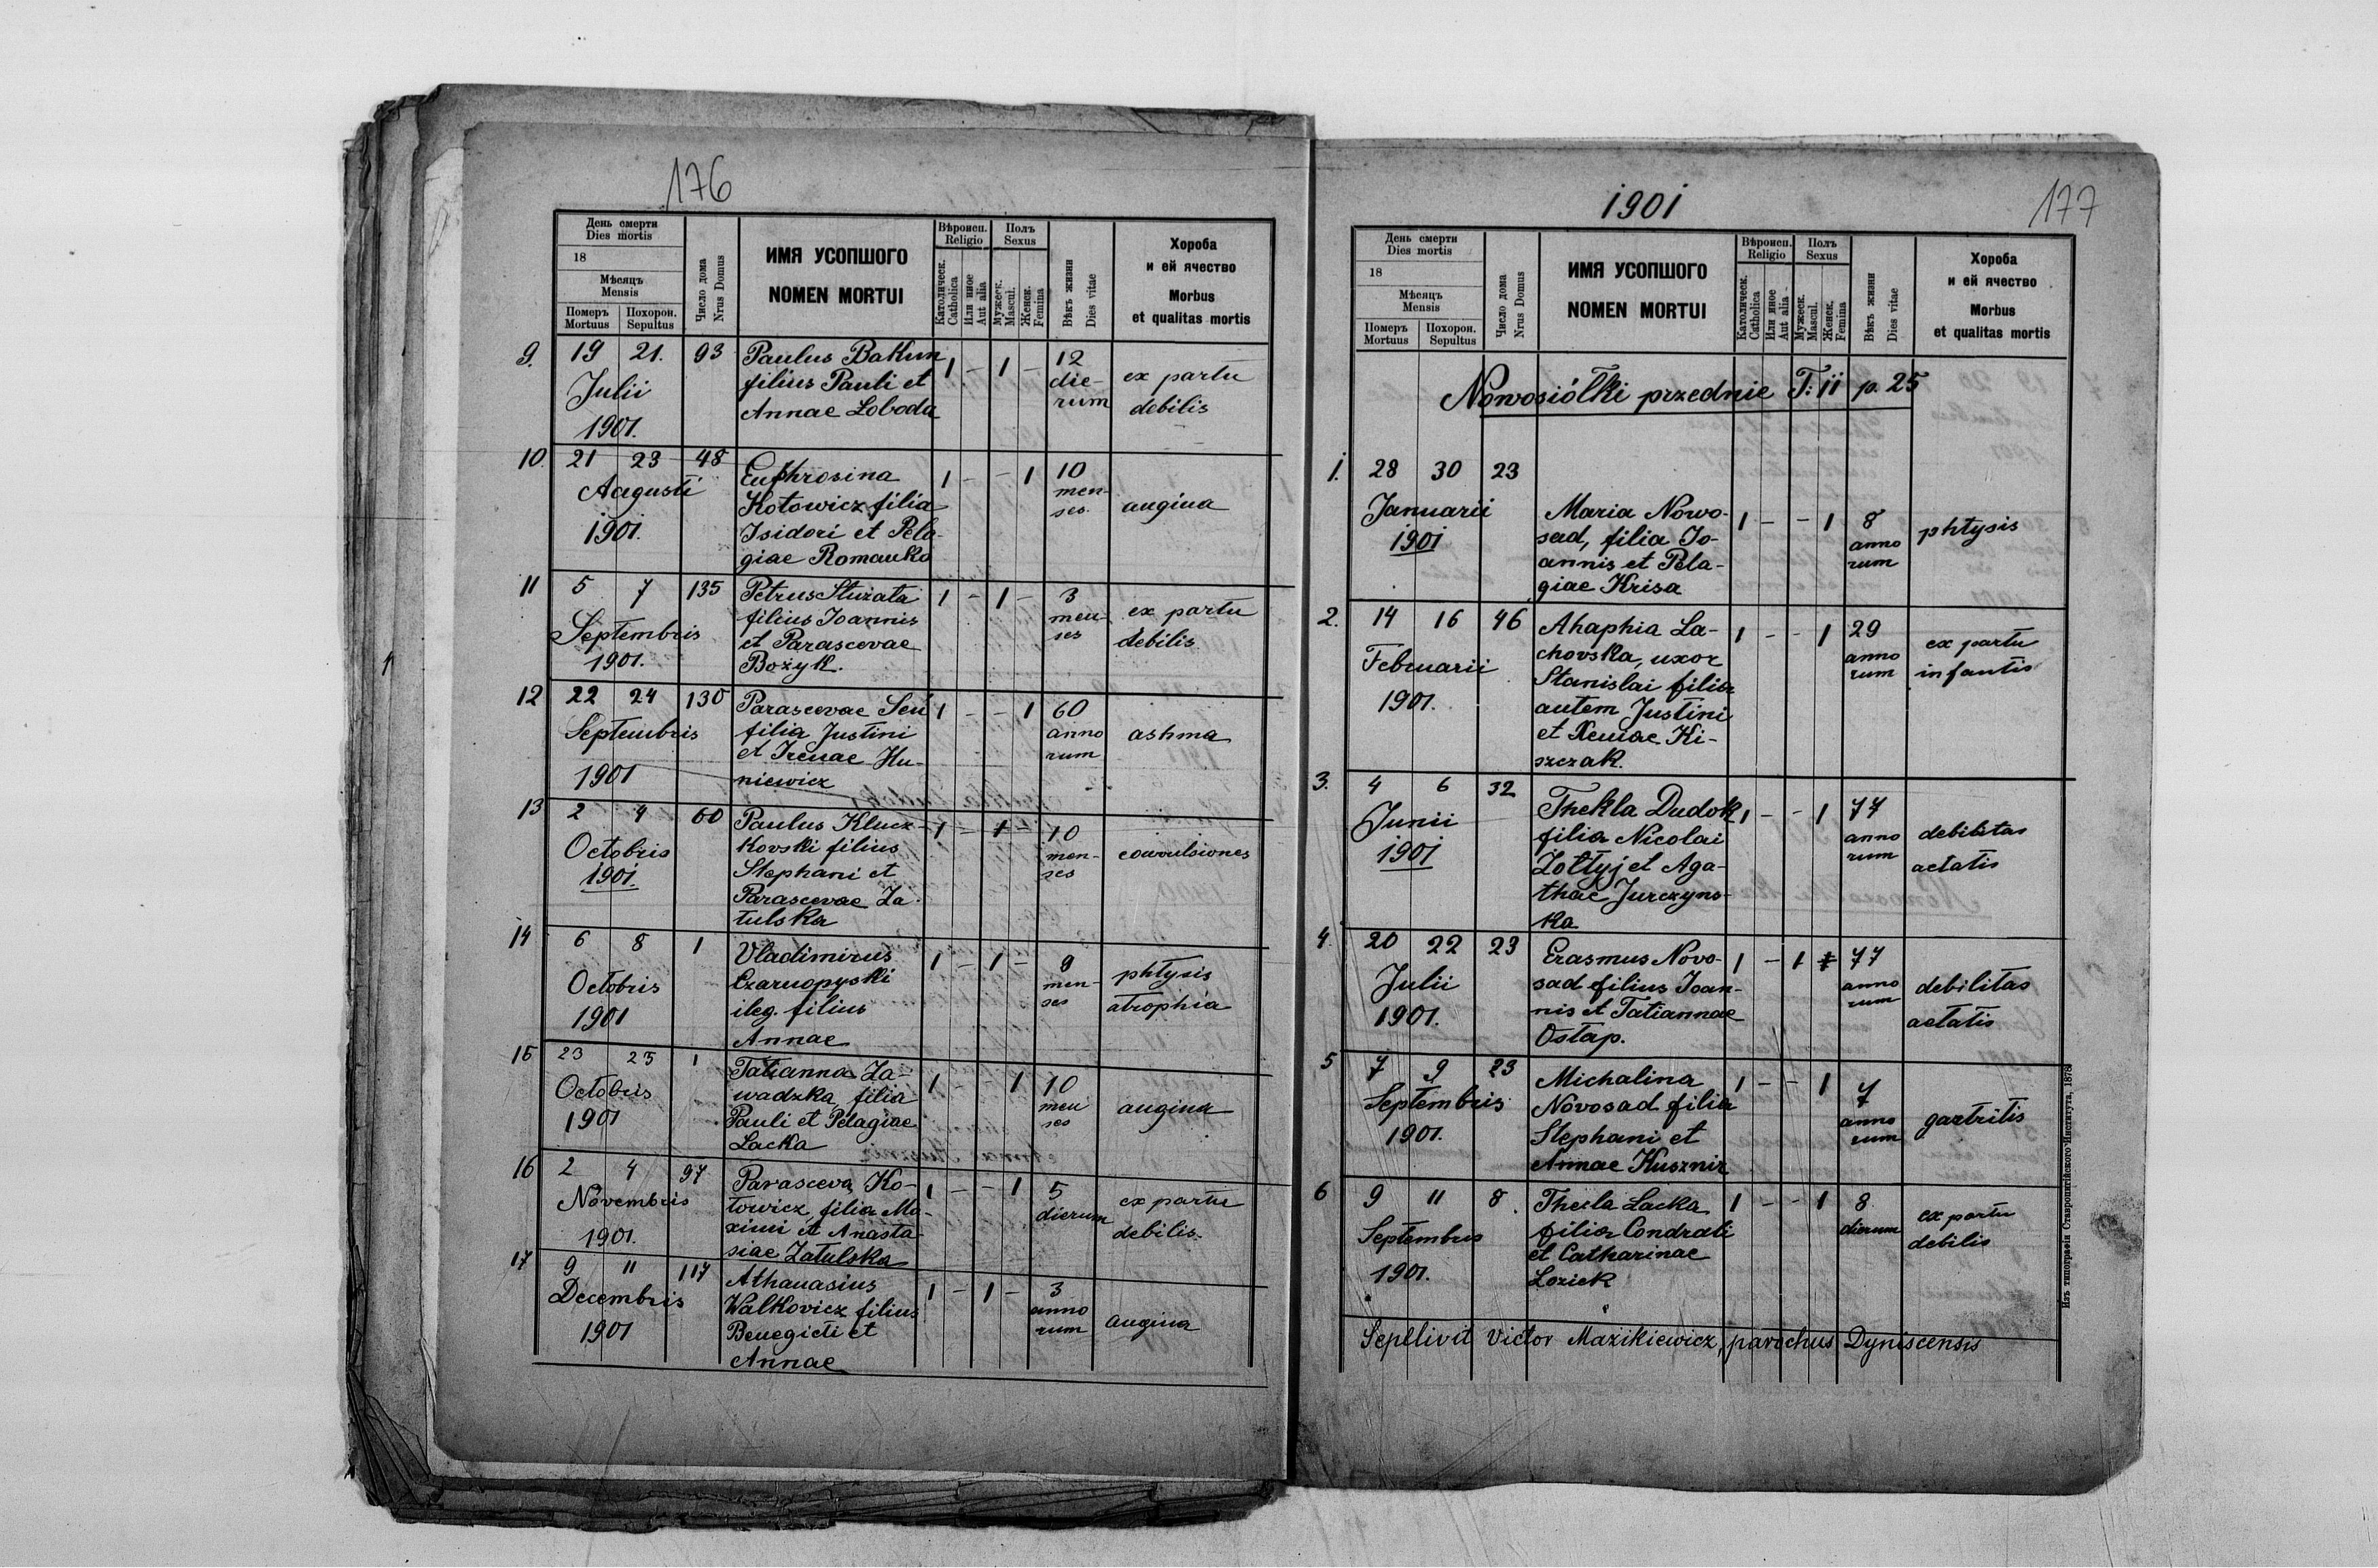 176
День смерти
Dies mortis
18
Мѣсяцъ
Mensis
Померъ
Mortuus
Похорон.
Sepultus
Число дома
Nrus Domus
ИМЯ УСОПШОГО
NOMEN MORTUI
Вѣроисп.
Religio
Католическ.
Catholica
Или иное
Aut alia
Полъ
Sexus
Мужеск.
Mascul.
Женск.
Femina
Вѣкъ жизни
Dies vitae
Хороба
и ей ячество
Morbus
et qualitas mortis
9. 19 21. 93 Paulus Bakun 1 - 1 - 12
Julii filius Pauli et die- ex partu
1901. Annae Loboda rum debilis
10. 21 23 48 Euphrosina 1 - - 1 10
Augusti Kotowicz filia men- angina
1901. Isidori et Pela- ses.
giae Romanko
11 5 7 135 Petrus Sturata 1 - 1 - 3
Septembris filius Joannis men- ex partu
1901. et Parascevae ses debilis
Bożyk.
12 22 24 130 Parascevae Seń 1 - - 1 60
Septembris filia Justini anno ashma
1901 et Irenae Hu- rum
niewicz
13 2 4 60 Paulus Klucz- 1 - 1 - 10
Octobris kovski filius men- convulsiones
1901. Stephani et ses
Parascevae Za-
tulska
14 6 8 1 Vladimirus 1 - 1 - 9
Octobris Czarnopyski men- phtysis
1901 ileg. filius ses atrophia
Annae
15 23 25 1 Tatianna Za- 1 - - 1 10
Octobris wadzka, filia men angina
1901 Pauli et Pelagiae ses
Lacka
16 2 4 97 Parasceva Ko- 1 - - 1 5
Novembris towicz, filia Ma- dierum ex partu
1901. ximi et Anasta- debilis.
siae Zatulska
17 9 11 117 Athanasius 1 - 1 - 3
Decembris Walkovicz filius anno angina
1901 Benegicti et rum
Annae
1901
177
День смерти
Dies mortis
18
Мѣсяцъ
Mensis
Померъ
Mortuus
Похорон.
Sepultus
Число дома
Nrus Domus
ИМЯ УСОПШОГО
NOMEN MORTUI
Вѣроисп.
Religio
Католическ.
Catholica
Или иное
Aut alia
Полъ
Sexus
Мужеск.
Mascul.
Женск.
Femina
Вѣкъ жизни
Dies vitae
Хороба
и ей ячество
Morbus
et qualitas mortis
Nowosiółki przednie T: II p. 25
1. 28 30 23
Januarii Maria Nowo- 1 - - 1 8 phtysis
1901 sad, filia Jo- anno
annis et Pela- rum
giae Krisa
2. 14 16 46 Ahaphia La- 1 - - 1 29
Februarii chovska, uxor anno ex partu
1901. Stanislai filia rum infantis
autem Justini
et Xeniae Ki-
szczak.
3. 4 6 32 Thekla Dudok 1 - - 1 77
Junii filia Nicolai anno debilitas
1901 Żołtyj et Aga- rum aetatis
thae Jurczyns-
ka
4. 20 22 23 Erasmus Novo- 1 - 1 77
Julii sad filius Joan- anno debilitas
1901. nis et Tatiannae rum aetatis
Ostap.
5 7 9 23 Michalina 1 - - 1 7
Septembris Novosad filia anno gartritis
1901. Stephani et rum
Annae Kusznir
6 9 11 8. Thecla Lacka 1 - - 1 8
Septembris filia Condrati dierum ex partu
1901. et Catharinae debilis
Loziek
Sepelivit Victor Mazikiewicz, parochus Dyniscensis
Изъ типографіи Ставропигійского Института, 1878